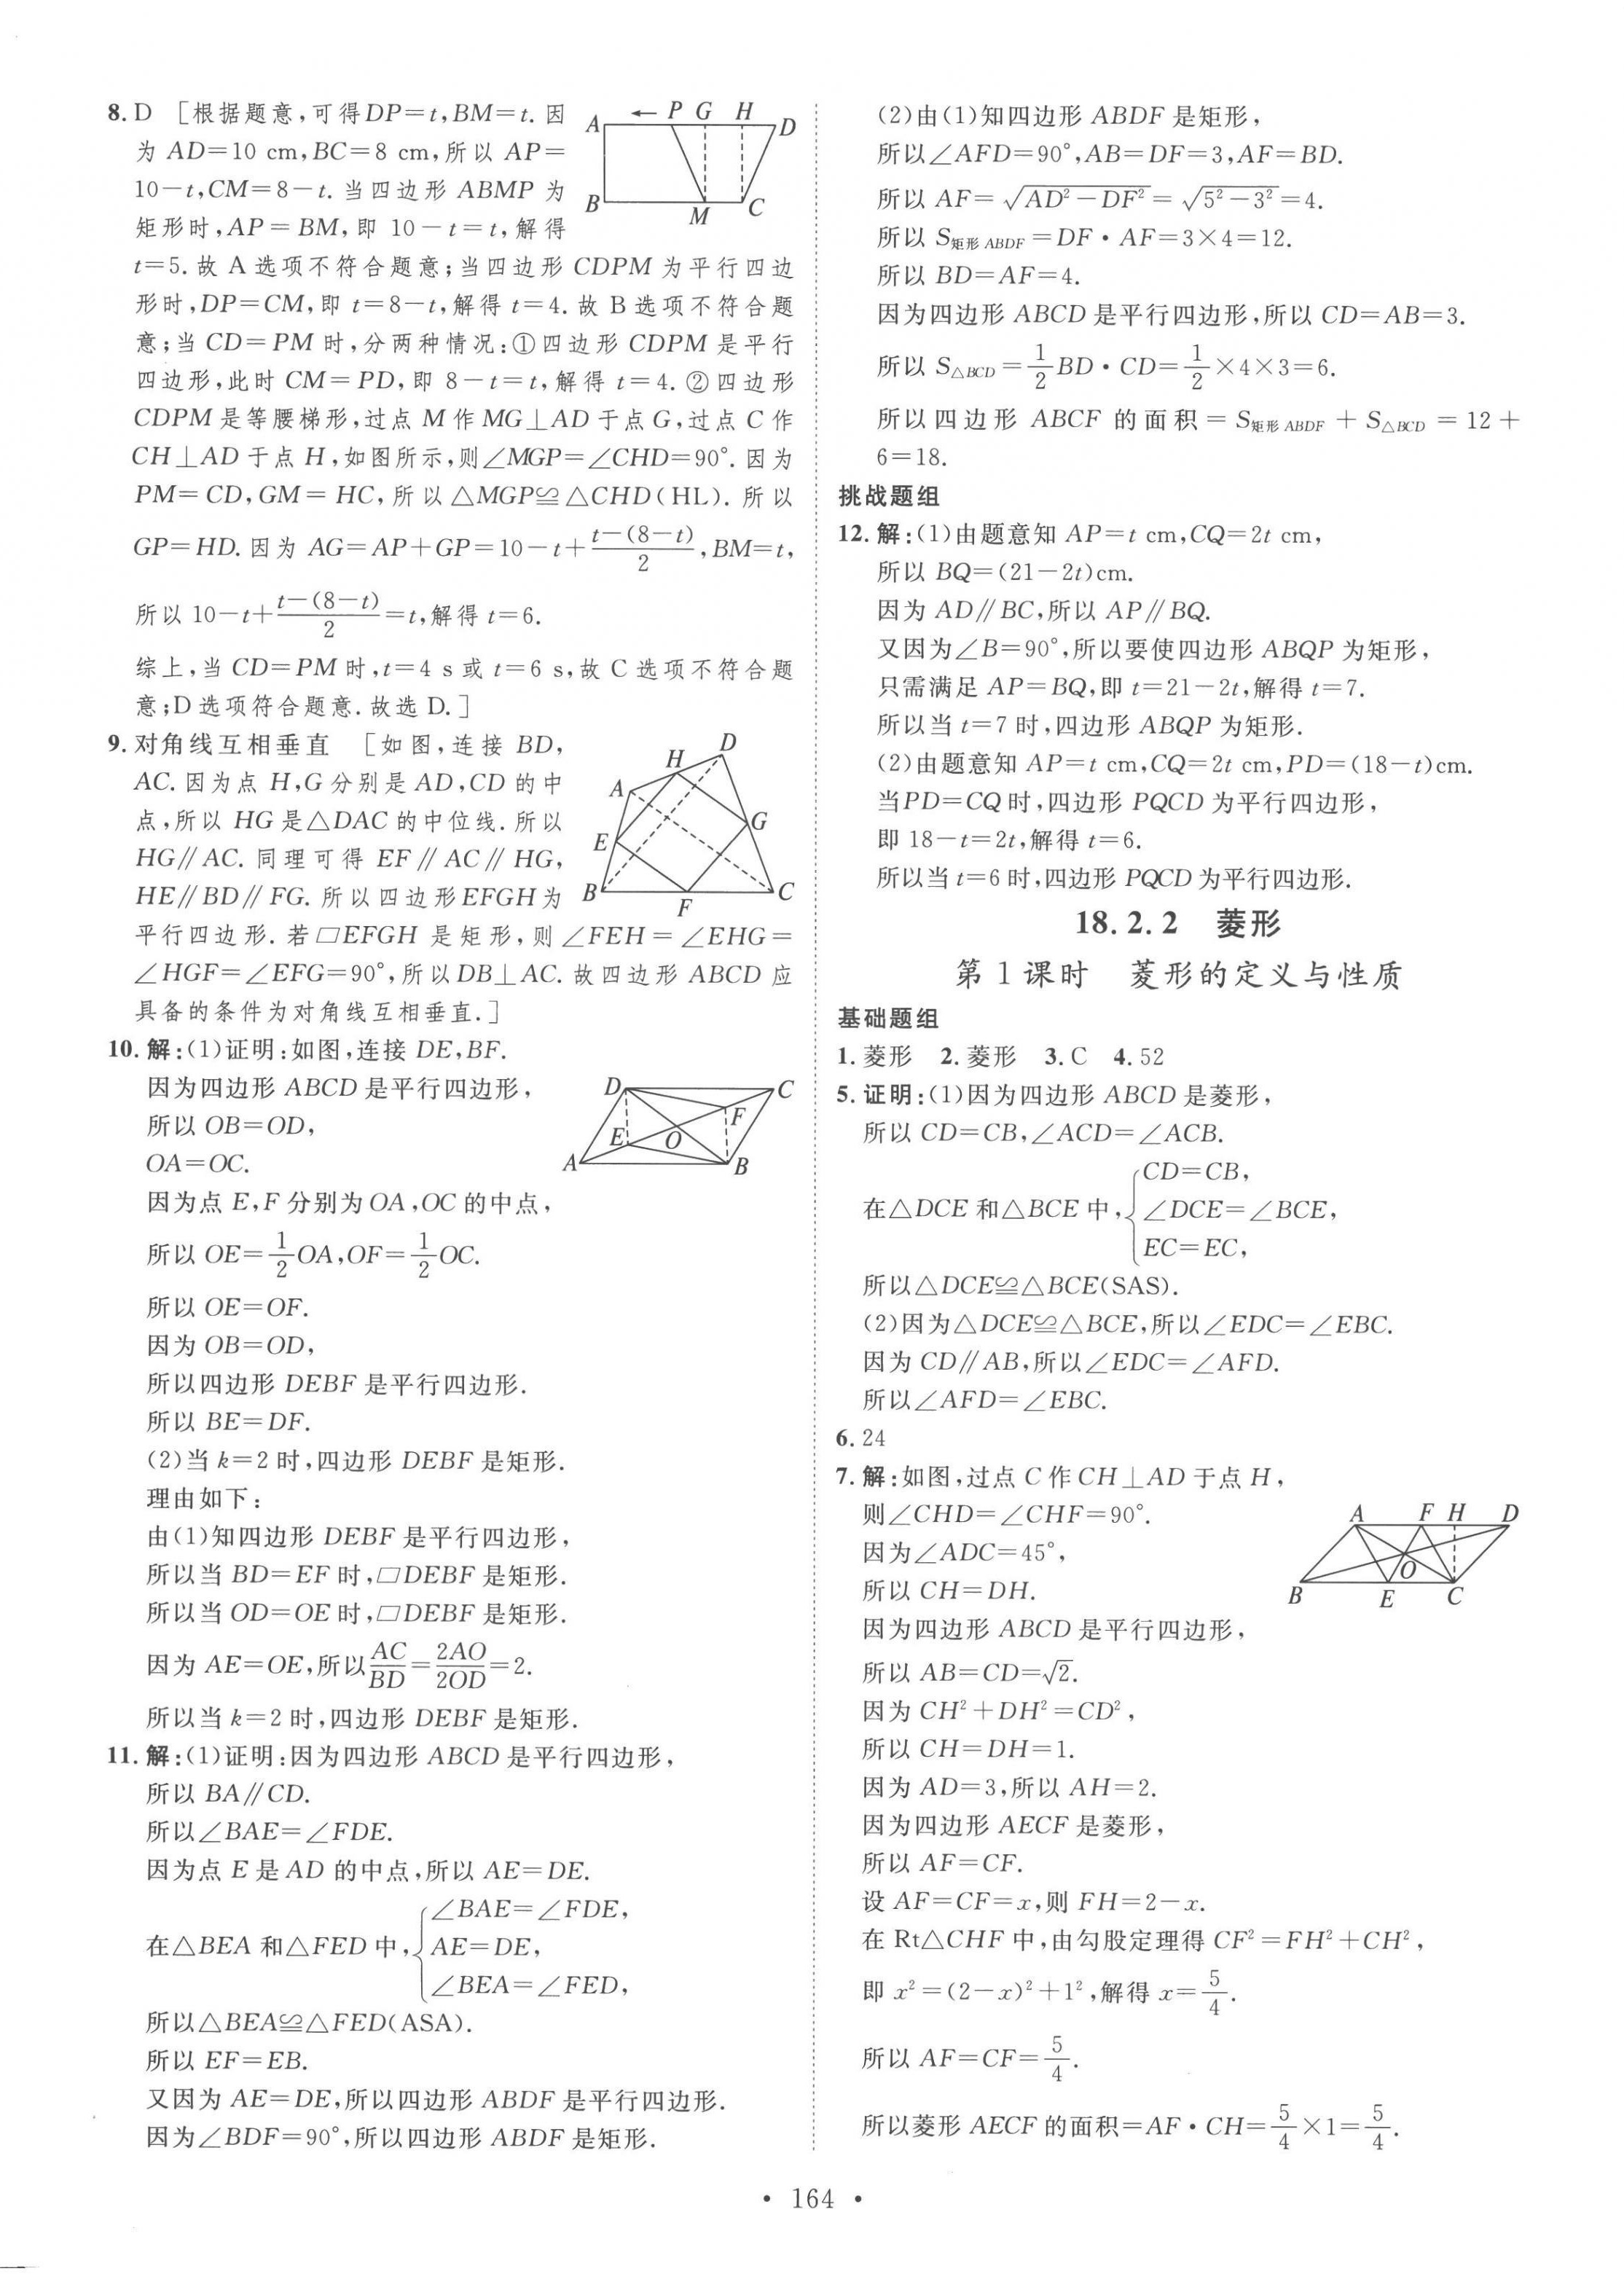 8. D ［根据题意,可得DP=t,BM=t. 因
为 AD=10 cm,BC=8 cm,所以 AP=
10-t,CM=8-t. 当四边形 ABMP 为
矩形时,AP=BM,即 10-t=t,解得
t=5. 故 A 选项不符合题意;当四边形 CDPM 为平行四边
形时,DP=CM,即 t=8-t,解得 t=4. 故 B 选项不符合题
意;当 CD=PM 时,分两种情况:①四边形 CDPM 是平行
四边形,此时 CM=PD,即 8-t=t,解得 t=4. ②四边形
CDPM 是等腰梯形,过点 M 作 MG⊥AD 于点 G,过点 C 作
CH⊥AD 于点 H,如图所示,则∠MGP=∠CHD=90°. 因为
PM=CD,GM=HC,所以△MGP≌△CHD(HL). 所以
GP=HD. 因为 AG=AP+GP=10-t+\frac{t-(8-t)}{2},BM=t,
所以 10-t+\frac{t-(8-t)}{2}=t,解得 t=6.
综上,当 CD=PM 时,t=4 s 或 t=6 s,故 C 选项不符合题
意;D 选项符合题意. 故选 D.］
← P G H
A D
B M C
9. 对角线互相垂直 ［如图,连接 BD,
AC. 因为点 H,G 分别是 AD,CD 的中
点,所以 HG 是△DAC 的中位线. 所以
HG∥AC. 同理可得 EF∥AC∥HG,
HE∥BD∥FG. 所以四边形EFGH为
平行四边形. 若▱EFGH 是矩形,则∠FEH=∠EHG=
∠HGF=∠EFG=90°,所以DB⊥AC. 故四边形 ABCD 应
具备的条件为对角线互相垂直.］
D
H
A
G
E
B C
F
10. 解:(1)证明:如图,连接 DE,BF.
因为四边形 ABCD 是平行四边形,
所以 OB=OD,
OA=OC.
因为点 E,F 分别为 OA,OC 的中点,
所以 OE=\frac{1}{2}OA,OF=\frac{1}{2}OC.
所以 OE=OF.
因为 OB=OD,
所以四边形 DEBF 是平行四边形.
所以 BE=DF.
(2)当 k=2 时,四边形 DEBF 是矩形.
理由如下:
由(1)知四边形 DEBF 是平行四边形,
所以当 BD=EF 时,▱DEBF 是矩形.
所以当 OD=OE 时,▱DEBF 是矩形.
因为 AE=OE,所以\frac{AC}{BD}=\frac{2AO}{2OD}=2.
所以当 k=2 时,四边形 DEBF 是矩形.
D C
F
E O
A B
11. 解:(1)证明:因为四边形 ABCD 是平行四边形,
所以 BA∥CD.
所以∠BAE=∠FDE.
因为点 E 是 AD 的中点,所以 AE=DE.
∠BAE=∠FDE,
在△BEA 和△FED 中,{AE=DE,
∠BEA=∠FED,
所以△BEA≌△FED(ASA).
所以 EF=EB.
又因为 AE=DE,所以四边形 ABDF 是平行四边形.
因为∠BDF=90°,所以四边形 ABDF 是矩形.
(2)由(1)知四边形 ABDF 是矩形,
所以∠AFD=90°,AB=DF=3,AF=BD.
所以 AF=√(AD²-DF²)=√(5²-3²)=4.
所以 S矩形ABDF=DF·AF=3×4=12.
所以 BD=AF=4.
因为四边形 ABCD 是平行四边形,所以 CD=AB=3.
所以 S△BCD=\frac{1}{2}BD·CD=\frac{1}{2}×4×3=6.
所以四边形 ABCF 的面积=S矩形ABDF+S△BCD=12+
6=18.
挑战题组
12. 解:(1)由题意知 AP=t cm,CQ=2t cm,
所以 BQ=(21-2t)cm.
因为 AD∥BC,所以 AP∥BQ.
又因为∠B=90°,所以要使四边形 ABQP 为矩形,
只需满足 AP=BQ,即 t=21-2t,解得 t=7.
所以当 t=7 时,四边形 ABQP 为矩形.
(2)由题意知 AP=t cm,CQ=2t cm,PD=(18-t)cm.
当PD=CQ 时,四边形 PQCD 为平行四边形,
即 18-t=2t,解得 t=6.
所以当 t=6 时,四边形 PQCD 为平行四边形.
18.2.2 菱形
第 1 课时 菱形的定义与性质
基础题组
1. 菱形 2. 菱形 3. C 4. 52
5. 证明:(1)因为四边形 ABCD 是菱形,
所以 CD=CB,∠ACD=∠ACB.
CD=CB,
在△DCE 和△BCE 中,{∠DCE=∠BCE,
EC=EC,
所以△DCE≌△BCE(SAS).
(2)因为△DCE≌△BCE,所以∠EDC=∠EBC.
因为 CD∥AB,所以∠EDC=∠AFD.
所以∠AFD=∠EBC.
6. 24
7. 解:如图,过点 C 作 CH⊥AD 于点 H,
则∠CHD=∠CHF=90°.
因为∠ADC=45°,
所以 CH=DH.
因为四边形 ABCD 是平行四边形,
所以 AB=CD=√2.
因为 CH²+DH²=CD²,
所以 CH=DH=1.
因为 AD=3,所以 AH=2.
因为四边形 AECF 是菱形,
所以 AF=CF.
设 AF=CF=x,则 FH=2-x.
在 Rt△CHF 中,由勾股定理得 CF²=FH²+CH²,
即 x²=(2-x)²+1²,解得 x=\frac{5}{4}.
所以 AF=CF=\frac{5}{4}.
所以菱形 AECF 的面积=AF·CH=\frac{5}{4}×1=\frac{5}{4}.
A F H D
O
B E C
· 164 ·